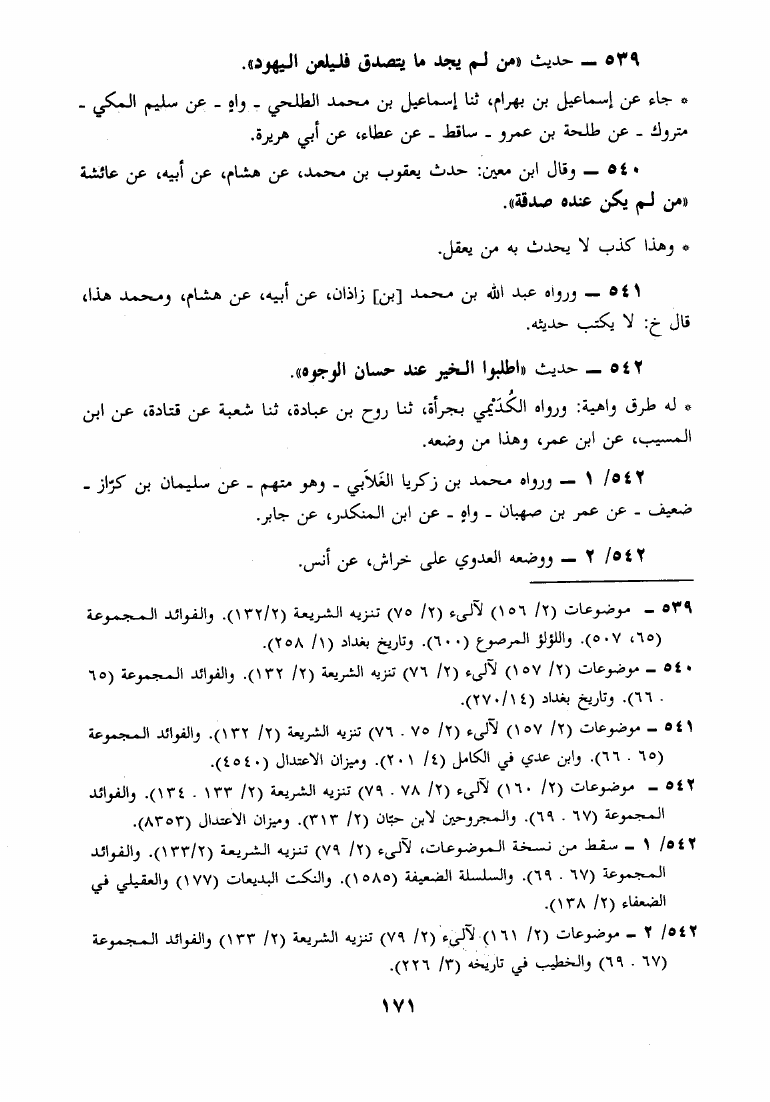 ٥٣٩ ــ حديث «من لم يجد ما يتصدق فليلعن اليهود».
* جاء عن إسماعيل بن بهرام، ثنا إسماعيل بن محمد الطلحي ـ واهٍ ـ عن سليم المكي ـ
متروك ـ عن طلحة بن عمرو ـ ساقط ـ عن عطاء، عن أبي هريرة.
٥٤٠ ــ وقال ابن معين: حدث يعقوب بن محمد، عن هشام، عن أبيه، عن عائشة
«من لم يكن عنده صدقة».
* وهذا كذب لا يحدث به من يعقل.
٥٤١ ــ ورواه عبد الله بن محمد [بن] زاذان، عن أبيه، عن هشام، ومحمد هذا،
قال خ: لا يكتب حديثه.
٥٤٢ ــ حديث «اطلبوا الخير عند حسان الوجوه».
* له طرق واهية: ورواه الكُدَيْمي بجرأة، ثنا روح بن عبادة، ثنا شعبة عن قتادة، عن ابن
المسيب، عن ابن عمر، وهذا من وضعه.
٥٤٢/ ١ ــ ورواه محمد بن زكريا الغَلاَبي ـ وهو متهم ـ عن سليمان بن كرّاز ـ
ضعيف ـ عن عمر بن صهبان ـ واهٍ ـ عن ابن المنكدر، عن جابر.
٥٤٢/ ٢ ــ ووضعه العدوي على خراش، عن أنس.
٥٣٩ ـ موضوعات (٢/ ١٥٦) لآلىء (٢/ ٧٥) تنزيه الشريعة (١٣٢/٢). والفوائد المجموعة
(٦٥، ٥٠٧). واللؤلؤ المرصوع (٦٠٠). وتاريخ بغداد (١/ ٢٥٨).
٥٤٠ ـ موضوعات (٢/ ١٥٧) لآلىء (٢/ ٧٦) تنزيه الشريعة (٢/ ١٣٢). والفوائد المجموعة (٦٥
. ٦٦). وتاريخ بغداد (٢٧٠/١٤).
٥٤١ ـ موضوعات (٢/ ١٥٧) لآلىء (٢/ ٧٥ . ٧٦) تنزيه الشريعة (٢/ ١٣٢). والفوائد المجموعة
(٦٥ . ٦٦). وابن عدي في الكامل (٤/ ٢٠١). وميزان الاعتدال (٤٥٤٠).
٥٤٢ ـ موضوعات (٢/ ١٦٠) لآلىء (٢/ ٧٨ . ٧٩) تنزيه الشريعة (٢/ ١٣٣ . ١٣٤). والفوائد
المجموعة (٦٧ . ٦٩). والمجروحين لابن حبّان (٢/ ٣١٣). وميزان الاعتدال (٨٣٥٣).
٥٤٢/ ١ ـ سقط من نسخة الموضوعات، لآلىء (٢/ ٧٩) تنزيه الشريعة (١٣٣/٢). والفوائد
المجموعة (٦٧ . ٦٩). والسلسلة الضعيفة (١٥٨٥). والنكت البديعات (١٧٧) والعقيلي في
الضعفاء (٢/ ١٣٨).
٥٤٢/ ٢ ـ موضوعات (٢/ ١٦١) لآلىء (٢/ ٧٩) تنزيه الشريعة (٢/ ١٣٣) والفوائد المجموعة
(٦٧ . ٦٩) والخطيب في تاريخه (٣/ ٢٢٦).
١٧١